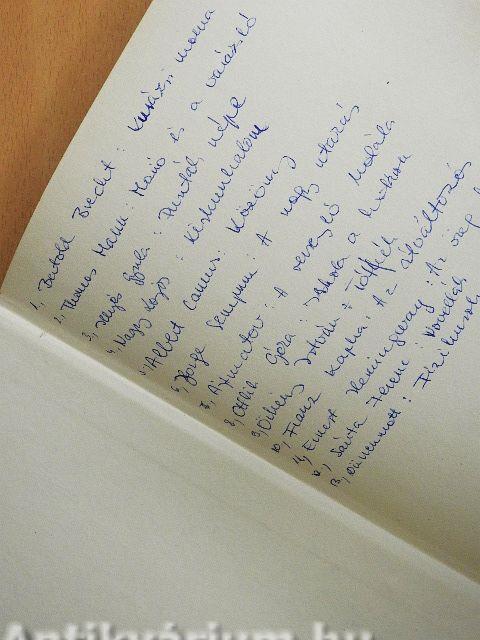 1, Bertold Brecht: Kurázsi mama
2, Thomas Mann: Marió és a varázsló
3, Illyés Gyula: Puszták népe
4, Nagy Lajos: Kiskunhalom
5, Albert Camus: Közöny
6, Jorge Semprun: A nagy utazás
7, Ajtmatov: A versenyló halála
8, Ottlik Géza: Iskola a határon
9, Örkény István: Tóték
10, Franz Kafka: Az átváltozás
11, Ernest Hemingway: Az öreg
12, Sánta Ferenc:
13, Dürrenmatt: Fizikusok
Antikvárium.hu